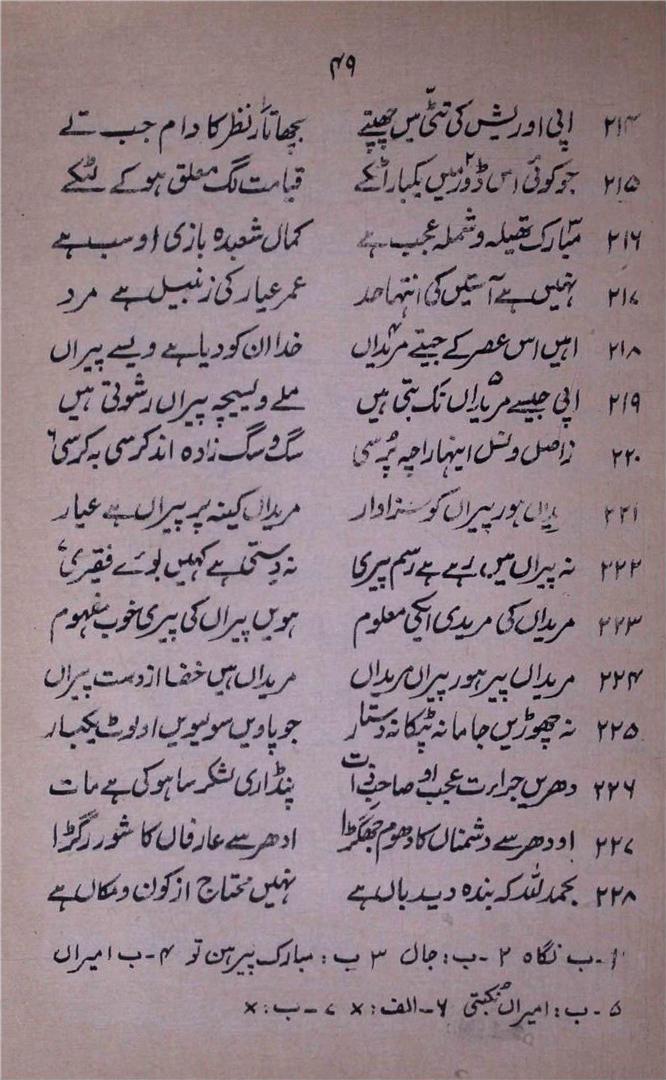 ۴۹
۲۱۴ اپی اور یش کی ٹٹی میں چھپتے بچھا تارِ نظر کا دام جب تے
۲۱۵ جو کوئی اس ڈور۲ میں یکبار اٹکے قیامت لگ معلق ہو کے لٹکے
۲۱۶ مبارک تھیلہ و شملہ عجب ہے کمال شعبدہ بازی او سب ہے
۲۱۷ نہیں ہے آستیں کی انتہا حد عمر عیار کی زنبیل ہے مرد
۲۱۸ اہیں اس عصر کے جیتے مریداں۴ خدا ان کو دیا ہے ویسے پیراں
۲۱۹ اپی جیسے مریداں۵ نک بتی ہیں ملے ویسیچہ پیراں رشوتی ہیں
۲۲۰ زاصل و نسل اینہا را چہ پرسی سگ و سگ زادہ اند کرسی بہ کرسی۶
۲۲۱ ہور پیراں کو سزاوار مریداں کینہ پر پیراں ہے عیار
۲۲۲ نہ پیراں میں رہے ہے رسم پیری نہ دستی ہے کہیں بوئے فقیری۷
۲۲۳ مریداں کی مریدی ایکی معلوم ہویں پیراں کی پیری خوب مفہوم
۲۲۴ مریداں پیر ہور پیراں مریداں مریداں ہیں خفا از دست پیراں
۲۲۵ نہ چھوڑیں جاما نہ ٹپکا نہ دستار جو پاویں سو لیویں او لوٹ یکبار
۲۲۶ دھریں جراءت عجب او صاحب ذات پنڈاری لشکر سا ہو کی ہے مات
۲۲۷ اودھر سے دشمناں کا دھوم جھگڑا ادھر سے عارفاں کا شور رگڑا
۲۲۸ بحمد للہ کہ بندہ دید بال ہے نہیں محتاج از کون و مکاں ہے
۱-ب نگاہ ۲-ب: جال ۳ ب: مبارک پیرہن تو ۴-ب امیراں
۵-ب: امیراں نکبتی ۶-الف: x ۷-ب: x